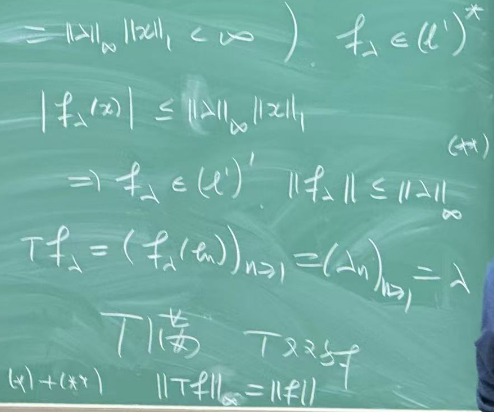 = ||λ||_∞ ||x||_1 < ∞ ). f_λ ∈ (ℓ')^*
|f_λ(x)| ≤ ||λ||_∞ ||x||_1
(**)
⇒ f_λ ∈ (ℓ')'. ||f_λ|| ≤ ||λ||_∞
T f_λ = (f_λ(e_n))_{n≥1} = (λ_n)_{n≥1} = λ
T T
(*)+(**) ||Tf||_∞ = ||f||